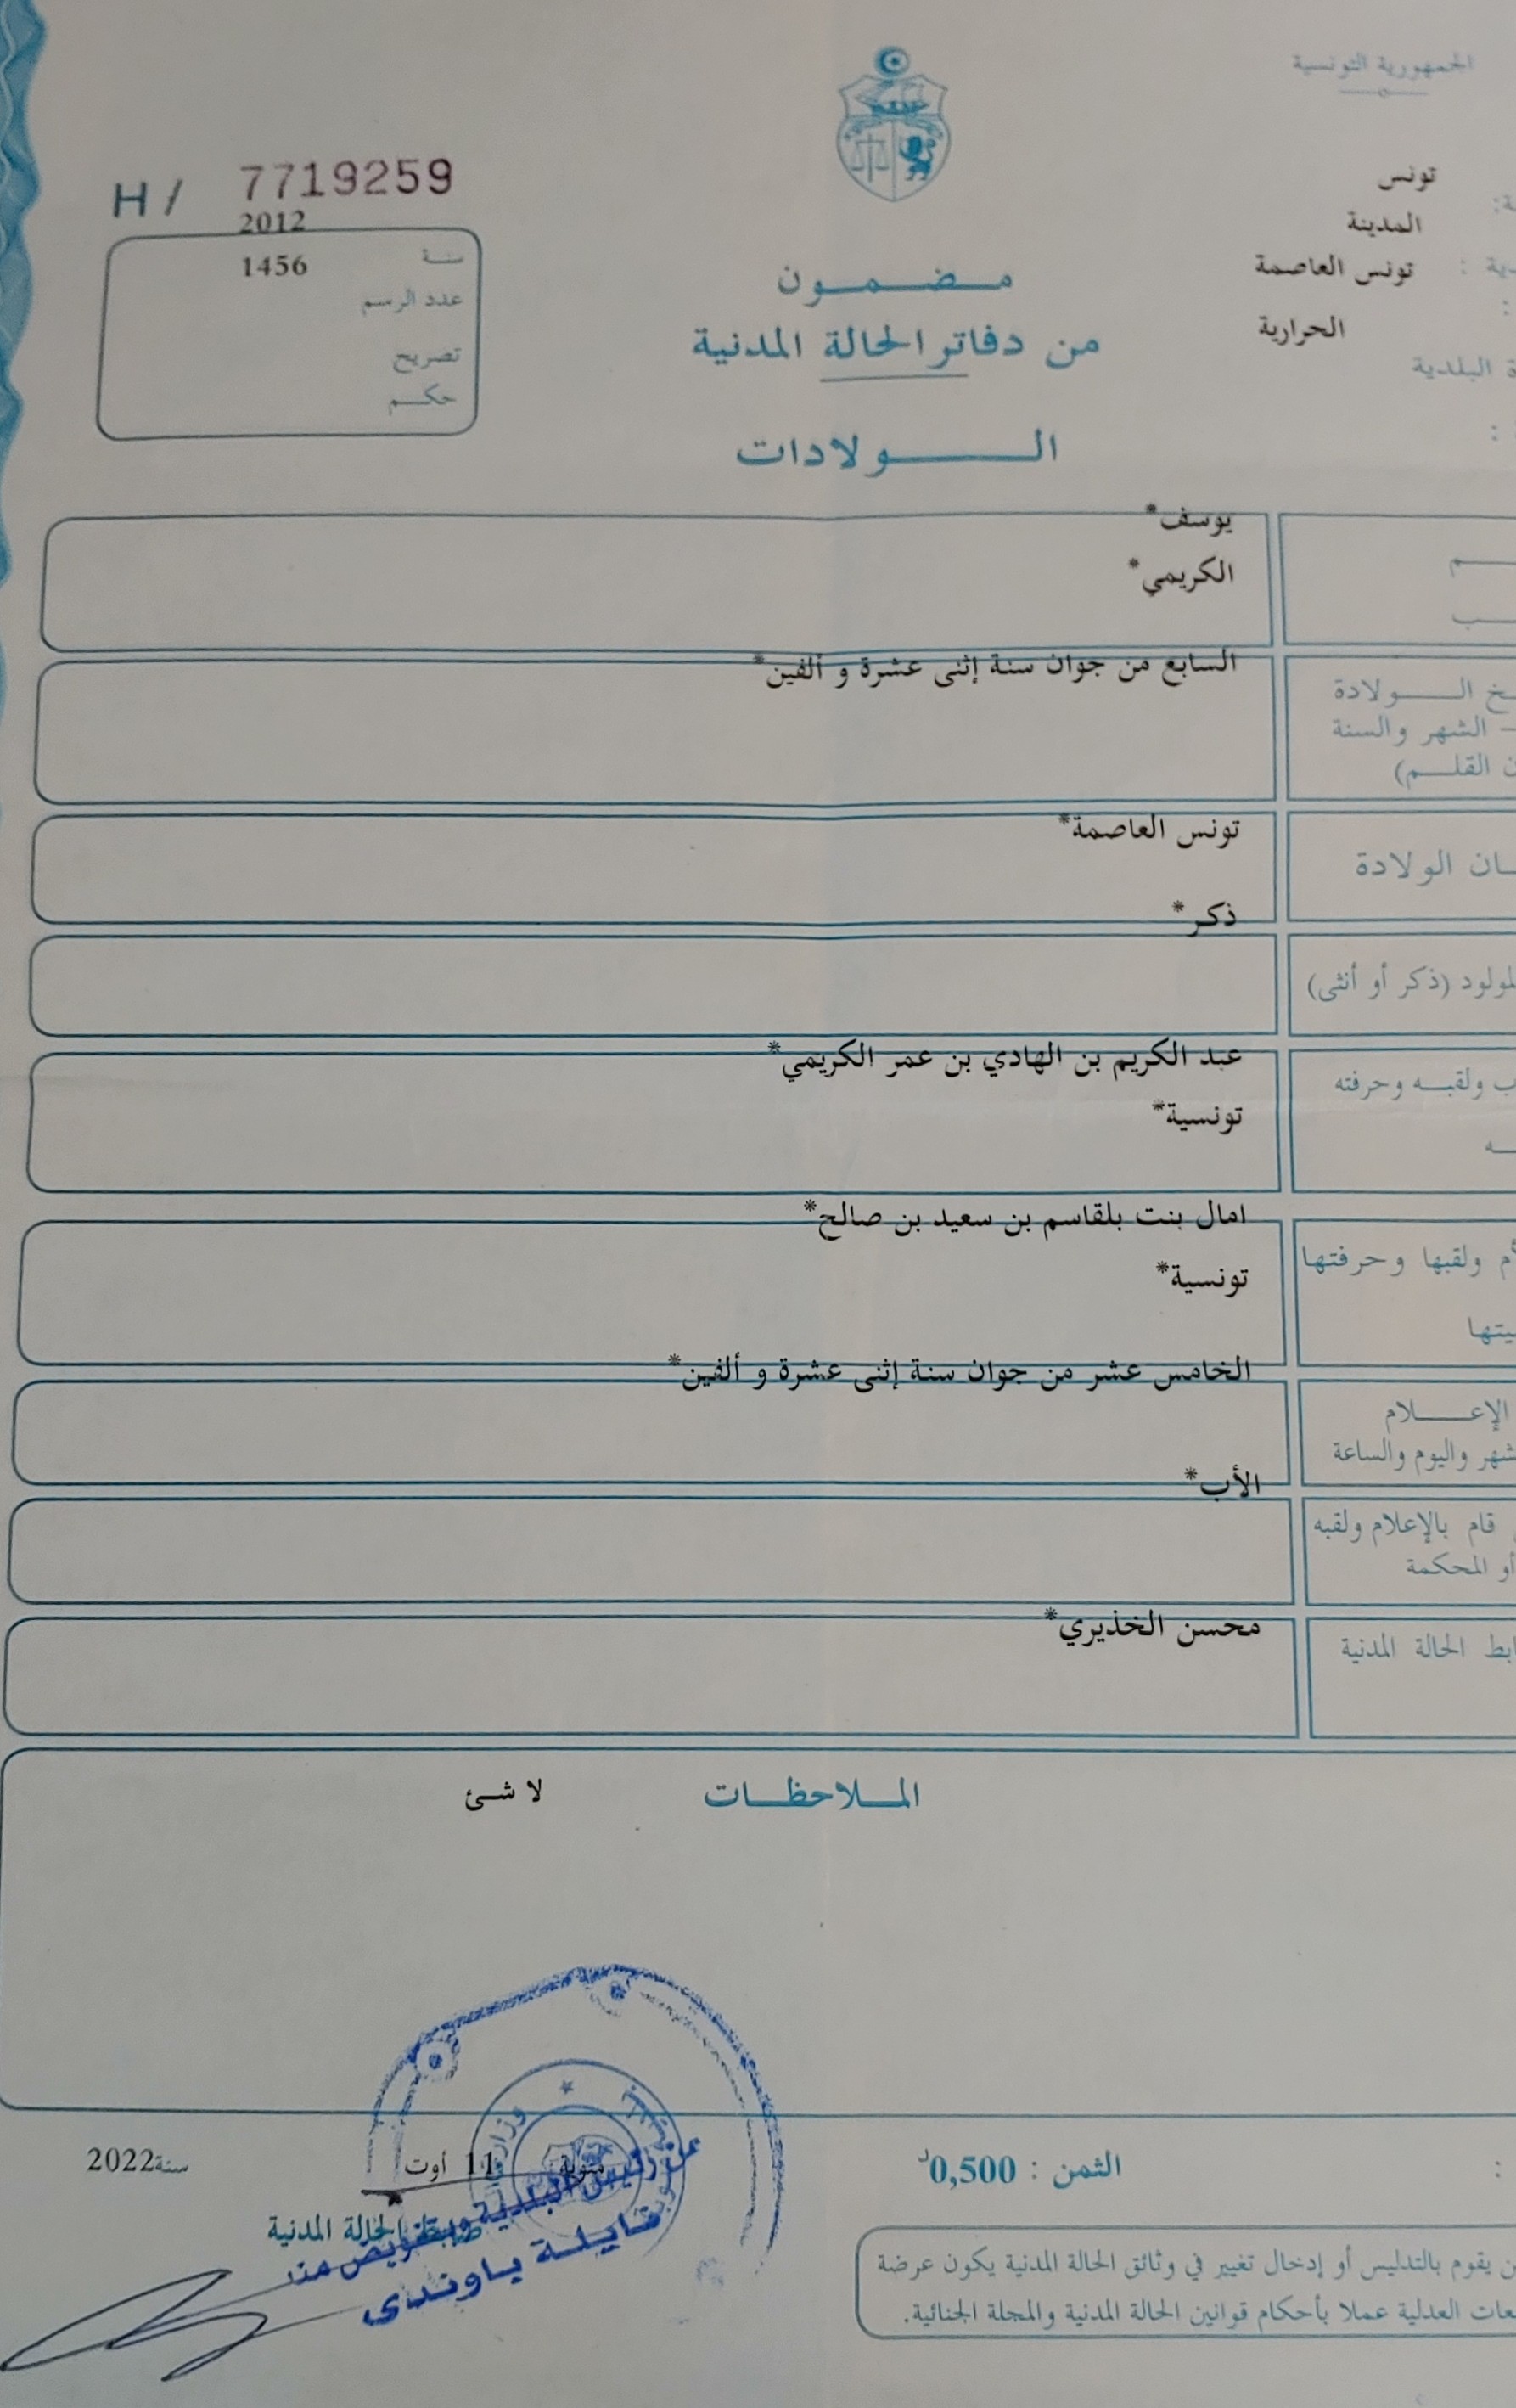 الجمهورية التونسية
تونس
المدينة
تونس العاصمة
الحرارية
البلدية
H / 7719259
2012
سنة
1456
عدد الرسم
تصريح
حكم
مضمون
من دفاتر الحالة المدنية
الولادات
يوسف*
الكريمي*
السابع من جوان سنة إثنى عشرة و ألفين*
الولادة
الشهر والسنة
القلم)
تونس العاصمة*
الولادة
ذكر*
(ذكر أو أنثى)
عبد الكريم بن الهادي بن عمر الكريمي*
ولقبه وحرفته
تونسية*
امال بنت بلقاسم بن سعيد بن صالح*
ولقبها وحرفتها
تونسية*
الخامس عشر من جوان سنة إثنى عشرة و ألفين*
الإعلام
واليوم والساعة
الأب*
قام بالإعلام ولقبه
أو المحكمة
محسن الخذيري*
الحالة المدنية
الملاحظات
لا شئ
الثمن : 0,500د
منوبة 11 أوت سنة 2022
ضابط الحالة المدنية
عن رئيس البلدية وبتفويض منه
يقوم بالتدليس أو إدخال تغيير في وثائق الحالة المدنية يكون عرضة
العدلية عملا بأحكام قوانين الحالة المدنية والمجلة الجنائية.